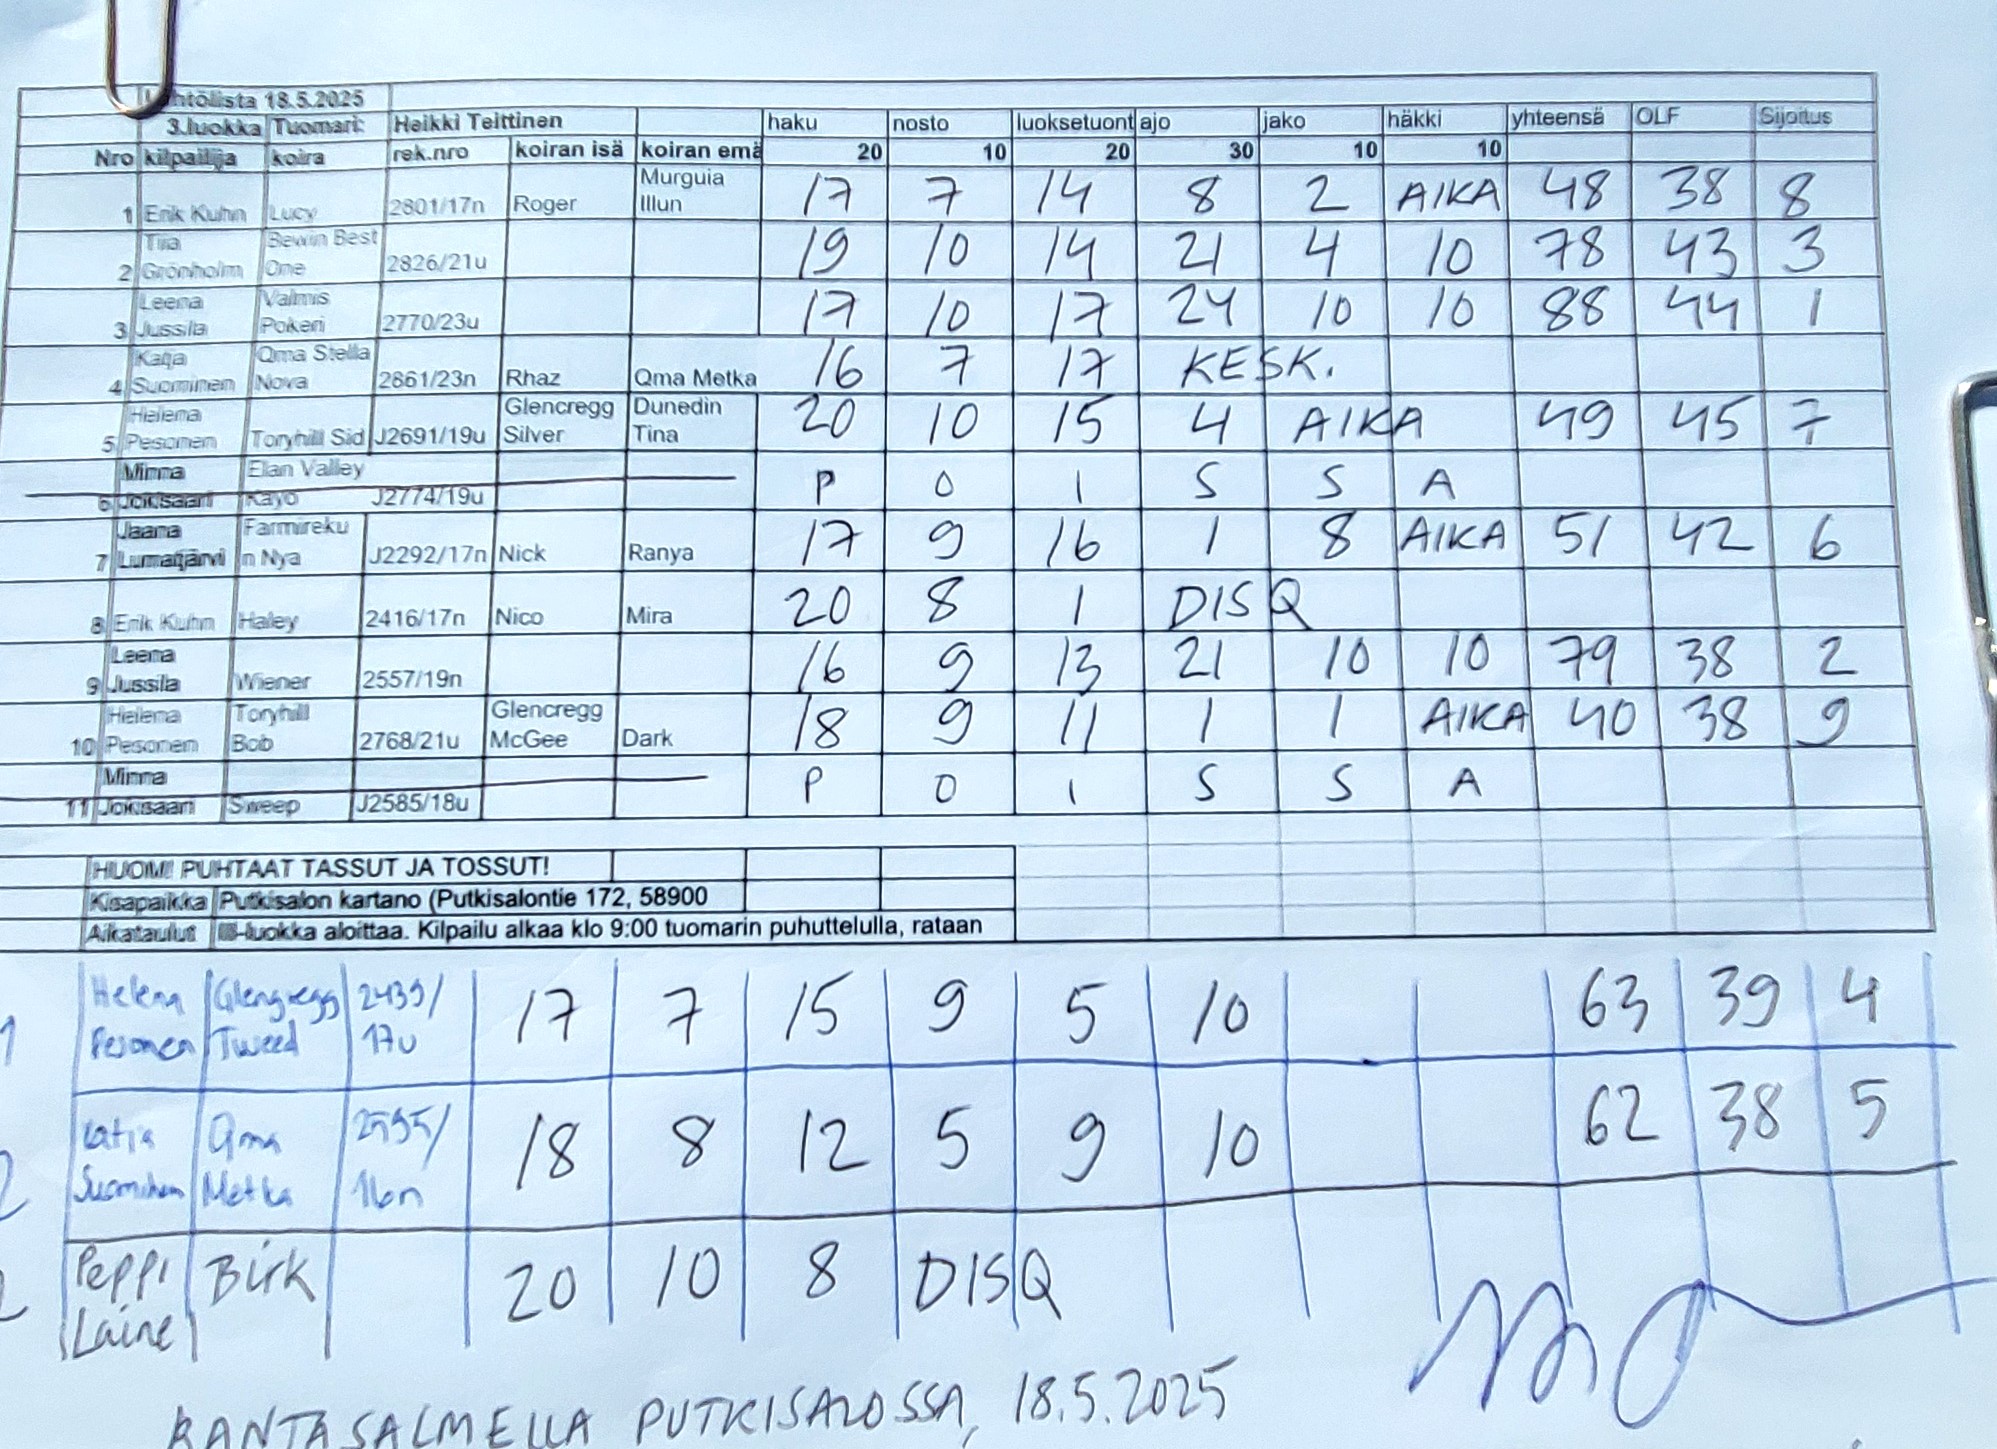 Lähtölista 18.5.2025
3.luokka Tuomari: Heikki Teittinen haku nosto luoksetuont ajo jako häkki yhteensä OLF Sijoitus
Nro kilpailija koira rek.nro koiran isä koiran emä 20 10 20 30 10 10
1 Erik Kuhn Lucy 2801/17n Roger Murguia Illun 17 7 14 8 2 AIKA 48 38 8
2 Tiia Grönholm Bewin Best One 2826/21u 19 10 14 21 4 10 78 43 3
3 Leena Jussila Valmis Pokeri 2770/23u 17 10 17 24 10 10 88 44 1
4 Katja Suominen Qma Stella Nova 2861/23n Rhaz Qma Metka 16 7 17 KESK.
5 Helena Pesonen Toryhill Sid J2691/19u Glencregg Silver Dunedin Tina 20 10 15 4 AIKA 49 45 7
6 Minna Jokisaari Elan Valley Kayo J2774/19u P O I S S A
7 Jaana Lumatjärvi Farmireku n Nya J2292/17n Nick Ranya 17 9 16 1 8 AIKA 51 42 6
8 Erik Kuhn Haley 2416/17n Nico Mira 20 8 1 DISQ
9 Leena Jussila Wiener 2557/19n 16 9 13 21 10 10 79 38 2
10 Helena Pesonen Toryhill Bob 2768/21u Glencregg McGee Dark 18 9 11 1 1 AIKA 40 38 9
11 Minna Jokisaari Sweep J2585/18u P O I S S A
HUOM! PUHTAAT TASSUT JA TOSSUT!
Kisapaikka Putkisalon kartano (Putkisalontie 172, 58900
Aikataulut III-luokka aloittaa. Kilpailu alkaa klo 9:00 tuomarin puhuttelulla, rataan
Helena Pesonen Glengregg Tweed 2439/17u 17 7 15 9 5 10 63 39 4
Katja Suominen Qma Metka 2595/16n 18 8 12 5 9 10 62 38 5
Peppi Laine Birk 20 10 8 DISQ
RANTASALMELLA PUTKISALOSSA, 18.5.2025